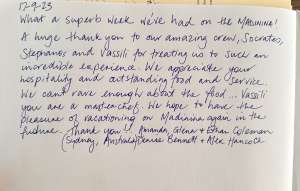 17-9-23
What a superb week we've had on the MADININA!
A huge thank you to our amazing crew, Socrates,
Stephanos and Vassili for treating us to such an
incredible experience. We appreciate your
hospitality and outstanding food and service.
We cant rave enough about the food... Vassili
you are a masterchef. We hope to have the
pleasure of vacationing on Madinina again in the
future. Thank you!! Amanda, & Ethan Coleman
(Sydney, Australia) Denise Bennett & Alex Hancock